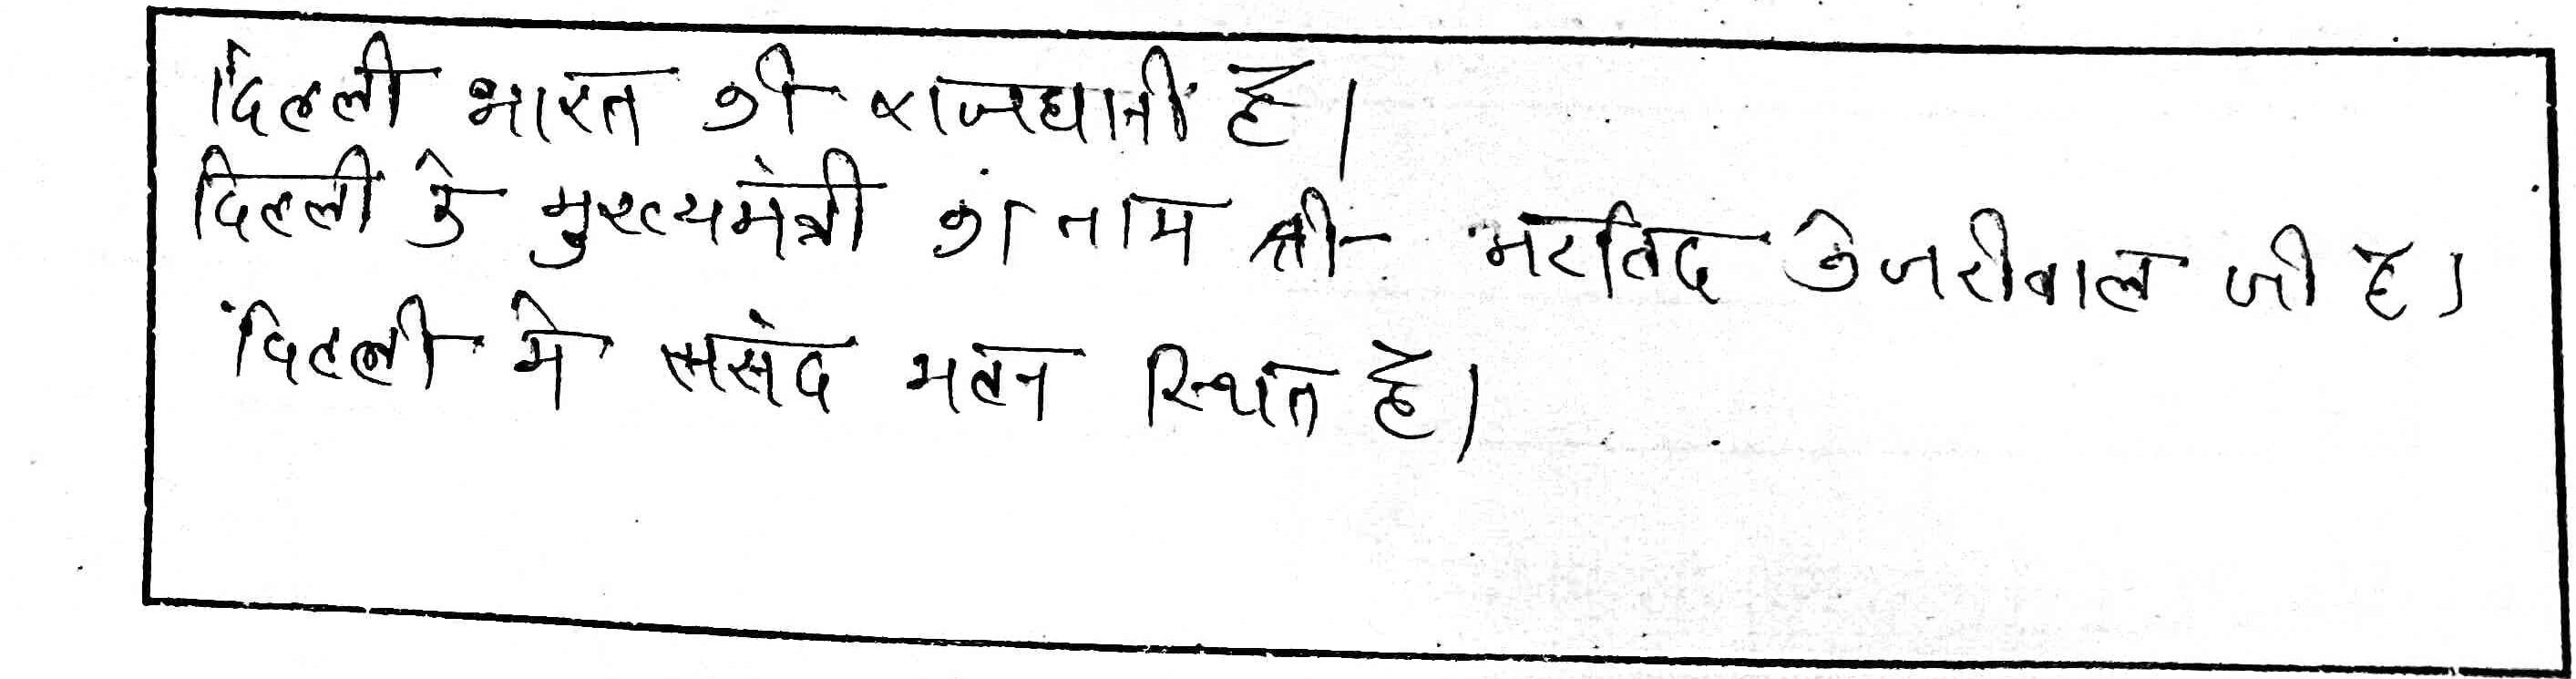 दिल्ली भारत की राजधानी है।
दिल्ली के मुख्यमंत्री का नाम श्री अरविंद केजरीवाल जी है।
दिल्ली मे संसद भवन स्थित है।